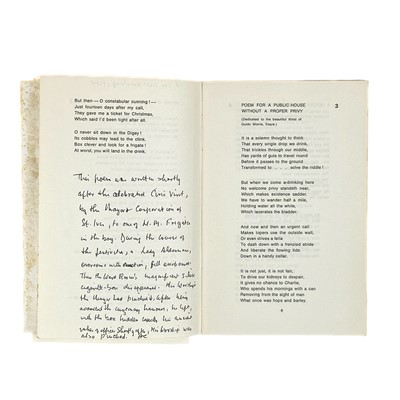 But then — O constabular cunning! —
Just fourteen days after my call,
They gave me a ticket for Christmas,
Which said I'd been tight after all.
O never sit down in the Digey!
Its cobbles may lead to the clink.
Box clever and look for a frigate!
At worst, you will land in the drink.
This poem was written shortly
after the celebrated Civic Visit,
by the Mayor & Corporation of
St. Ives, to one of H.M. Frigates
in the bay. During the course of
the festivities, a Lady
overcome with emotion, fell overboard.
Then the Ward Room's magnificent silver
cigarette-box disappeared. His Worship
the Mayor had pinched it. After being
the box hidden
also pinched.
POEM FOR A PUBLIC-HOUSE
WITHOUT A PROPER PRIVY
3
(Dedicated to the beautiful Hotel of
It is a solemn thought to think
That every single drop we drink,
That trickles through our middle,
Has yards of guts to travel round
Before it passes to the ground
Transformed to . . . . solve the riddle!
But when we come a-drinking here
No welcome privy standeth near,
Which makes existence sadder.
We have to wander half a mile,
Holding water all the while,
Which lacerates the bladder.
And now and then an urgent call
Makes topers use the outside wall,
Or even drives a fella
To dash down with a frenzied stride
And liberate the flowing tide
Down in a handy cellar.
It is not just, it is not fair,
To drive our kidneys to despair.
It gives no chance to Charlie,
Who spends his mornings with a can
Removing from the sight of man
What once was hops and barley.